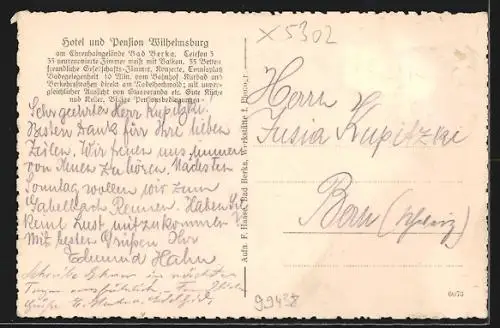 Hotel und Pension Wilhelmsburg
am Ehrenhaingelände Bad Berka. Telefon 3
35 neurenovierte Zimmer meist mit Balkon, 55 Betten
freundliche Gesellschafts-Zimmer, Konzerte, Tennisplatz
Badegelegenheit 10 Min. vom Bahnhof Kurbad und
Verkehrsstraßen direkt am Nadelhochwald; mit unver-
gleichlicher Aussicht von Gasveranda etc. Gute Küche
und Keller. Billige Pensionsbedingungen
Sehr geehrter Herr Kupitzki.
Besten Dank für Ihre lieben
Zeilen. Wir freuen uns immer
von Ihnen zu hören. Nächsten
Sonntag wollen wir zum
Gabelbach Rennen. Haben Sie
keine Lust mitzukommen?
Mit besten Grüßen Ihr
Edmund Hahn
Schreibe Ihnen in nächsten
Tagen ausführlich
Grüße
Aufn. F. Haase, Bad Berka, Werkstätte f. Photogr.
X5302
Herrn
Kupitzki
Bern
99438
6073